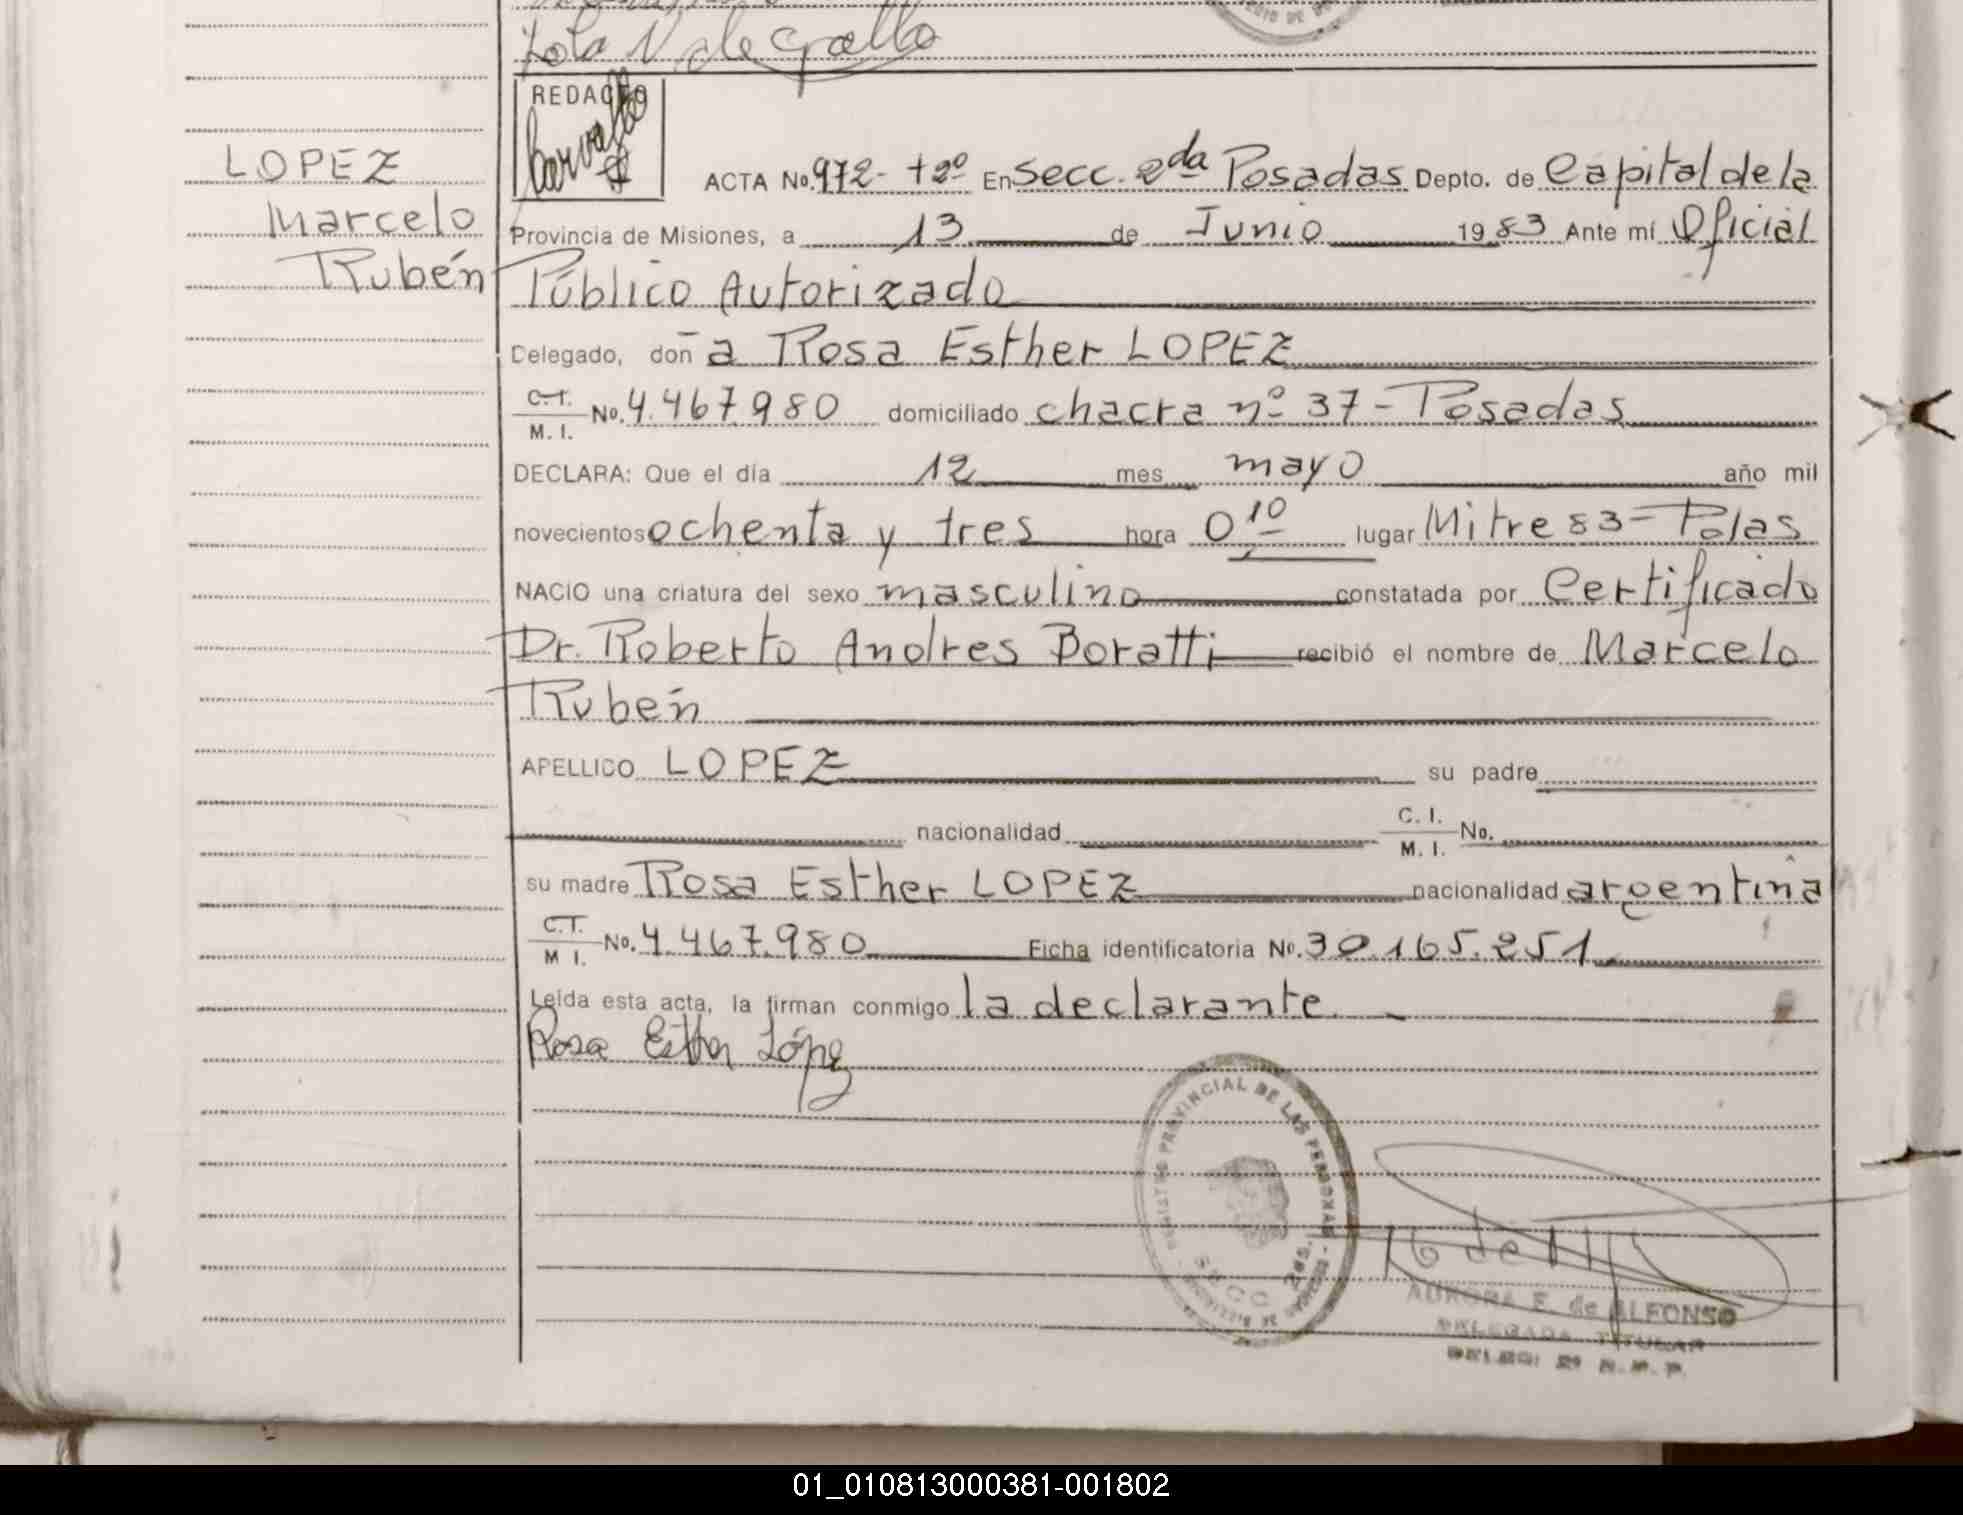 Lola V. de Gallo
REDACTO
Carvallo
LOPEZ
Marcelo
Rubén
ACTA No. 972- tº2º En Secc. 2da Posadas Depto. de Capital de la
Provincia de Misiones, a 13 de Junio 1983 Ante mí Oficial
Público Autorizado
Delegado, don a Rosa Esther LOPEZ
C.I.
M. I. No. 4.467.980 domiciliado chacra nº 37 - Posadas
DECLARA: Que el día 12 mes mayo año mil
novecientos ochenta y tres hora 0,10 lugar Mitre 83 - Pdas
NACIO una criatura del sexo masculino constatada por Certificado
Dr. Roberto Andres Boratti recibió el nombre de Marcelo
Rubén
APELLIDO LOPEZ su padre
nacionalidad C. I.
M. I. No.
su madre Rosa Esther LOPEZ nacionalidad argentina
C.I.
M I. No. 4.467.980 Ficha identificatoria No. 30.165.251
Leída esta acta, la firman conmigo la declarante. -
Rosa Esther López
REGISTRO PROVINCIAL DE LAS PERSONAS
SECC 2da.
AURORA E. de ALFONSO
DELEGADA TITULAR
DELEG: 2ª R. P. P.
01_010813000381-001802